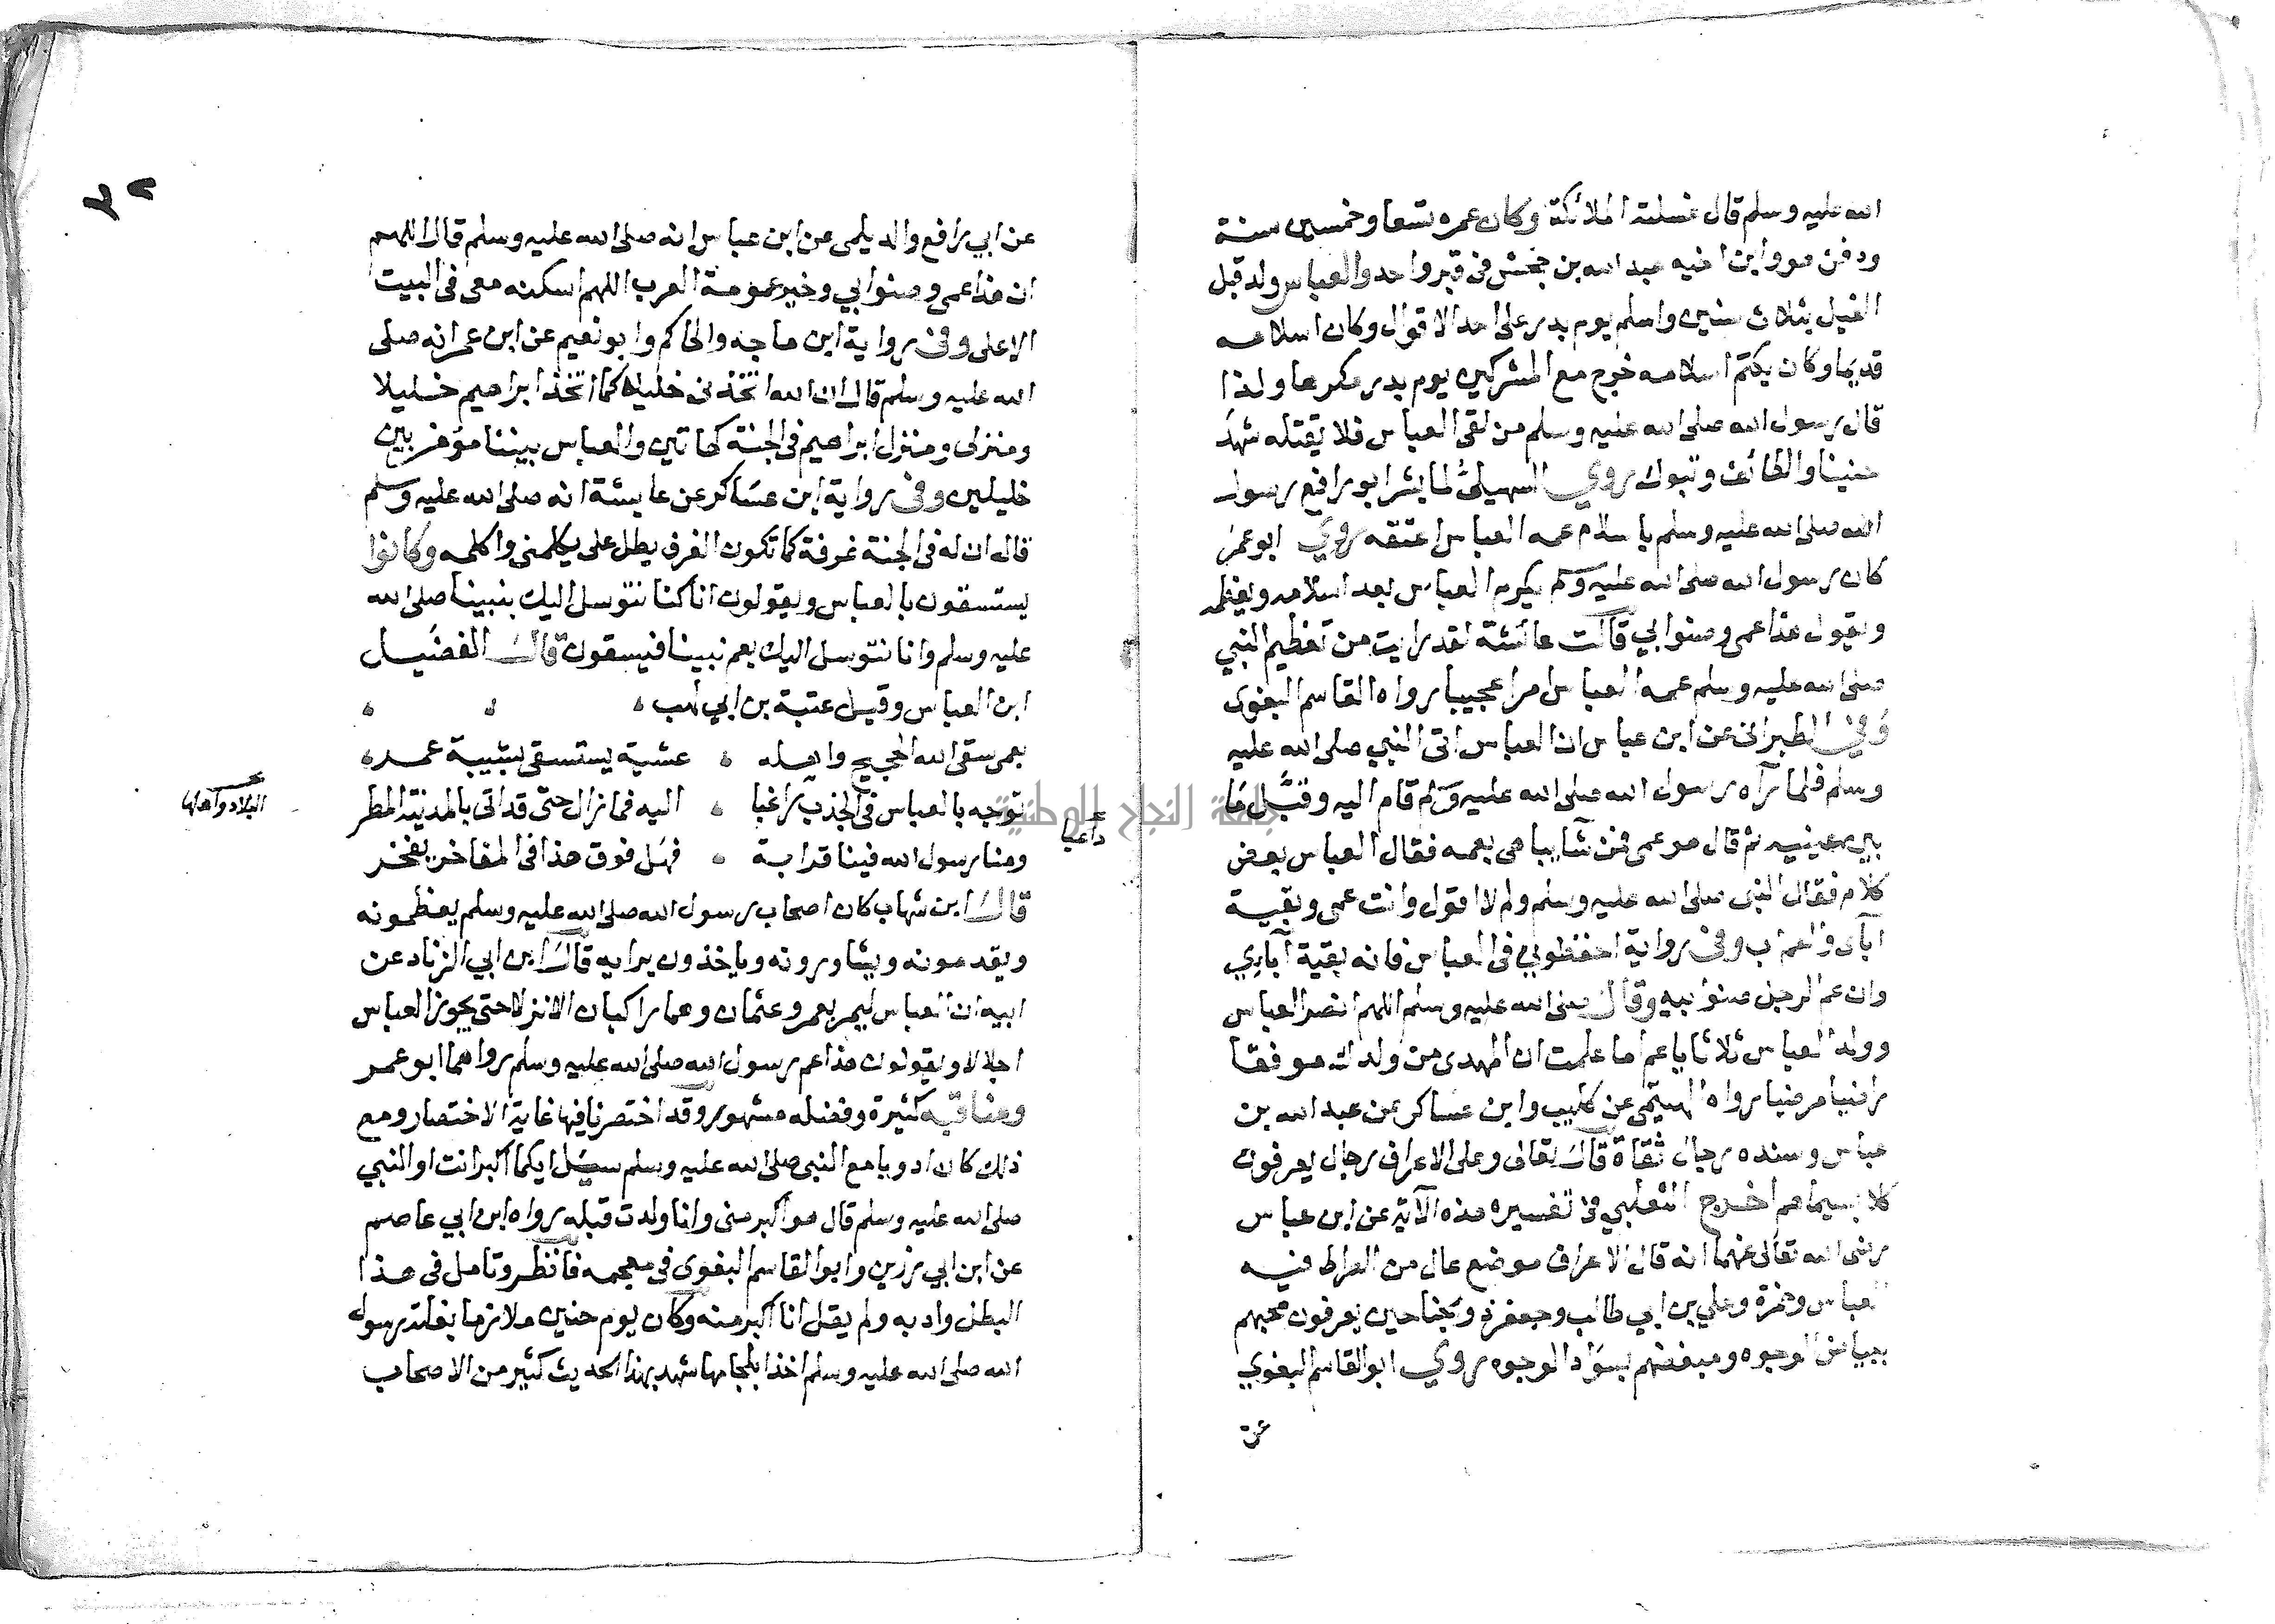 الله عليه وسلم قال غسلته الملائكة وكان عمره تسعا وخمسين سنة
ودفن هو وابن اخيه عبد الله بن جحش في قبر واحد والعباس ولد قبل
الفيل بثلاث سنين واسلم يوم بدر على احد الاقوال وكان اسلامه
قديما وكان يكتم اسلامه خرج مع المشركين يوم بدر مكرها ولذا
قال رسول الله صلى الله عليه وسلم من لقى العباس فلا يقتله شهد
حنينا والطائف وتبوك روي السهيلى لما بشر ابو رافع رسول
الله صلى الله عليه وسلم باسلام عمه العباس اعتقه روي ابو عمر
كان رسول الله صلى الله عليه وسلم يكرم العباس بعد اسلامه ويعظمه
ويقول هذا عمى وصنو ابي قالت عائشة لقد رايت من تعظيم النبي
صلى الله عليه وسلم عمه العباس امرا عجيبا رواه القاسم البغوى
وفي الطبرانى عن ابن عباس ان العباس اتى النبي صلى الله عليه
وسلم فلما رآه رسول الله صلى الله عليه وسلم قام اليه وقبل ما
بين عينيه ثم قال هو عمى فمن شا يباهى بعمه فقال العباس بعض
كلام فقال النبى صلى الله عليه وسلم ولم لا اقول وانت عمى وبقية
ابآى والعم اب وفى رواية احفظونى فى العباس فانه بقية آباءي
وان عم الرجل صنو ابيه وقال صلى الله عليه وسلم اللهم انصر العباس
وولد العباس ثلاثا ياعم اما علمت ان المهدى من ولدك موفقا
راضيا مرضيا رواه الهيتمى عن كليب وابن عساكر عن عبد الله بن
عباس وسنده رجال ثقاة قال تعالى وعلى الاعراف رجال يعرفون
كلا بسيماهم اخرج الثعلبي فى تفسيره هذه الآية عن ابن عباس
رضى الله تعالى عنهما انه قال الاعراف موضع عال من الصراط فيه
العباس وحمزة وعلي بن ابي طالب وجعفر ذو الجناحين يعرفون محبهم
ببياض الوجوه ومبغضهم بسواد الوجوه روي ابو القاسم البغوي
عن
٣٨
عن ابي رافع والديلمى عن ابن عباس انه صلى الله عليه وسلم قال اللهم
ان هذا عمى وصنو ابي وخير عمومة العرب اللهم اسكنه معى فى البيت
الاعلى وفى رواية ابن ماجه والحاكم وابو نعيم عن ابن عمر انه صلى
الله عليه وسلم قال ان الله اتخذنى خليلا كما اتخذ ابراهيم خليلا
ومنزلى ومنزل ابراهيم فى الجنة كهاتين والعباس بيننا مؤمن بين
خليلين وفى رواية ابن عساكر عن عايشة انه صلى الله عليه وسلم
قال ان له فى الجنة غرفة كما تكون الغرف يطل على يكلمنى واكلمه وكانوا
يستسقون بالعباس ويقولون انا كنا نتوسل اليك بنبينا صلى الله
عليه وسلم وانا نتوسل اليك بعم نبينا فيسقون قال الفضيل
ابن العباس وقيل عتبة بن ابي لهب
بعمى سقى الله الحجيج واهله عشية يستسقى بشيبة عمر
البلاد واهلها
توجه بالعباس فى الجذب راغبا اليه فما زال حتى قد اتى بالمدينة المطر
داعيا
ومنا رسول الله فينا قرابة فهل فوق هذا فى المفاخر يفخر
قال ابن شهاب كان اصحاب رسول الله صلى الله عليه وسلم يعظمونه
ويقدمونه ويشاورونه وياخذون برايه قال ابن ابي الزناد عن
ابيه ان العباس ليمر بعمر وعثمان وهما راكبان الا نزلا حتى يجوز العباس
اجلالا ويقولون هذا عم رسول الله صلى الله عليه وسلم رواهما ابو عمر
ومناقبه كثيرة وفضله مشهور وقد اختصرنا فيها غاية الاختصار ومع
ذلك كان ادوبا مع النبى صلى الله عليه وسلم سيل ايكما اكبر انت او النبي
صلى الله عليه وسلم قال هو اكبر منى وانا ولدت قبله رواه ابن ابي عاصم
عن ابن ابي رزين وابو القاسم البغوى فى معجمه فانظر وتامل فى هذا
البطل وادبه ولم يقل انا اكبر منه وكان يوم حنين ملازما بغلة رسول
الله صلى الله عليه وسلم اخذا بلجامها شهد بهذا الحديث كثير من الاصحاب
جامعة النجاح الوطنية